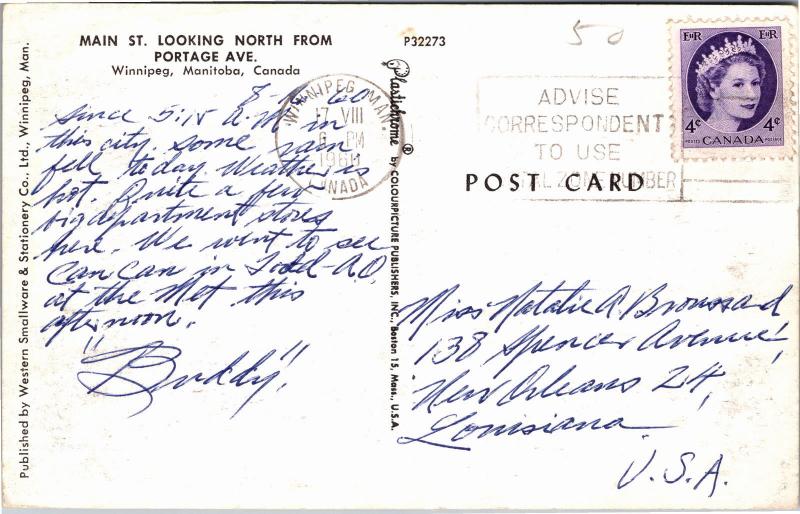 MAIN ST. LOOKING NORTH FROM
PORTAGE AVE.
Winnipeg, Manitoba, Canada
60
since 5:15 A.M in
this city. Some rain
fell today. Weather is
hot. Quite a few
big department stores
here. We went to see
Can Can in Todd-A.O.
at the Met this
afternoon.
"Buddy".
Published by Western Smallware & Stationery Co., Ltd., Winnipeg, Man.
P32273
Plastichrome ® by COLOURPICTURE PUBLISHERS, INC., Boston 15, Mass., U.S.A.
WINNIPEG MAN.
17 VIII
6 PM
1960
CANADA
50
ADVISE
CORRESPONDENT
TO USE
POSTAL ZONE NUMBER
EIIR EIIR
4¢ 4¢
POSTES CANADA POSTAGE
POST CARD
Miss Natalie A. Broussard
138 Spencer Avenue,
New Orleans 24,
Louisiana
U.S.A.